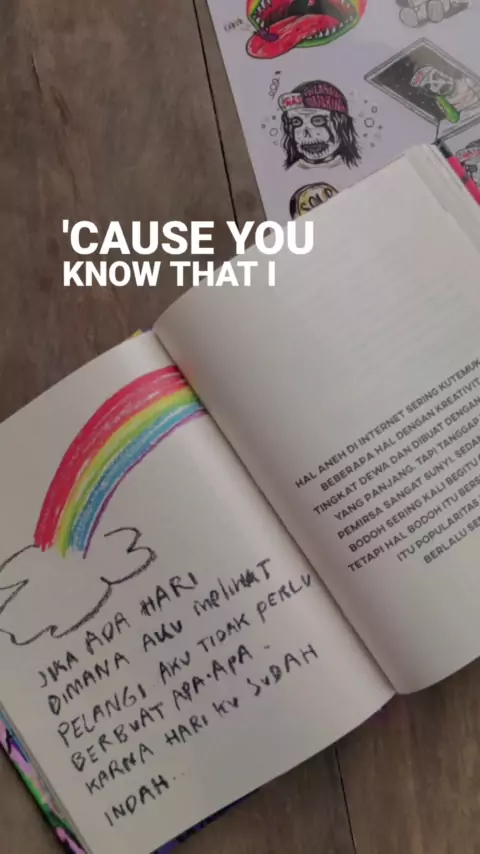 'CAUSE YOU
KNOW THAT I
JIKA ADA HARI
DIMANA AKU MELIHAT
PELANGI. AKU TIDAK PERLU
BERBUAT APA-APA.
KARNA HARI KU SUDAH
INDAH...
HAL ANEH DI INTERNET SERING KUTEMUK
BEBERAPA HAL DENGAN KREATIVITA
TINGKAT DEWA DAN DIBUAT DENGAN
YANG PANJANG. TAPI TANGGAP
PEMIRSA SANGAT SUNYI. SEDAN
BODOH SERING KALI BEGITU
TETAPI HAL BODOH ITU BERS
ITU POPULARITAS
BERLALU SE